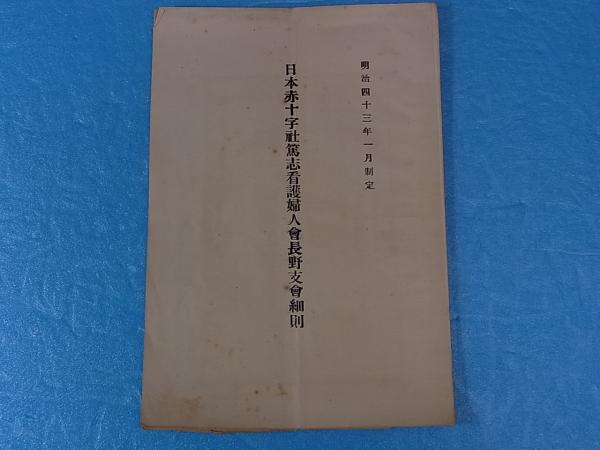 明治四十三年一月制定
日本赤十字社篤志看護婦人會長野支會細則